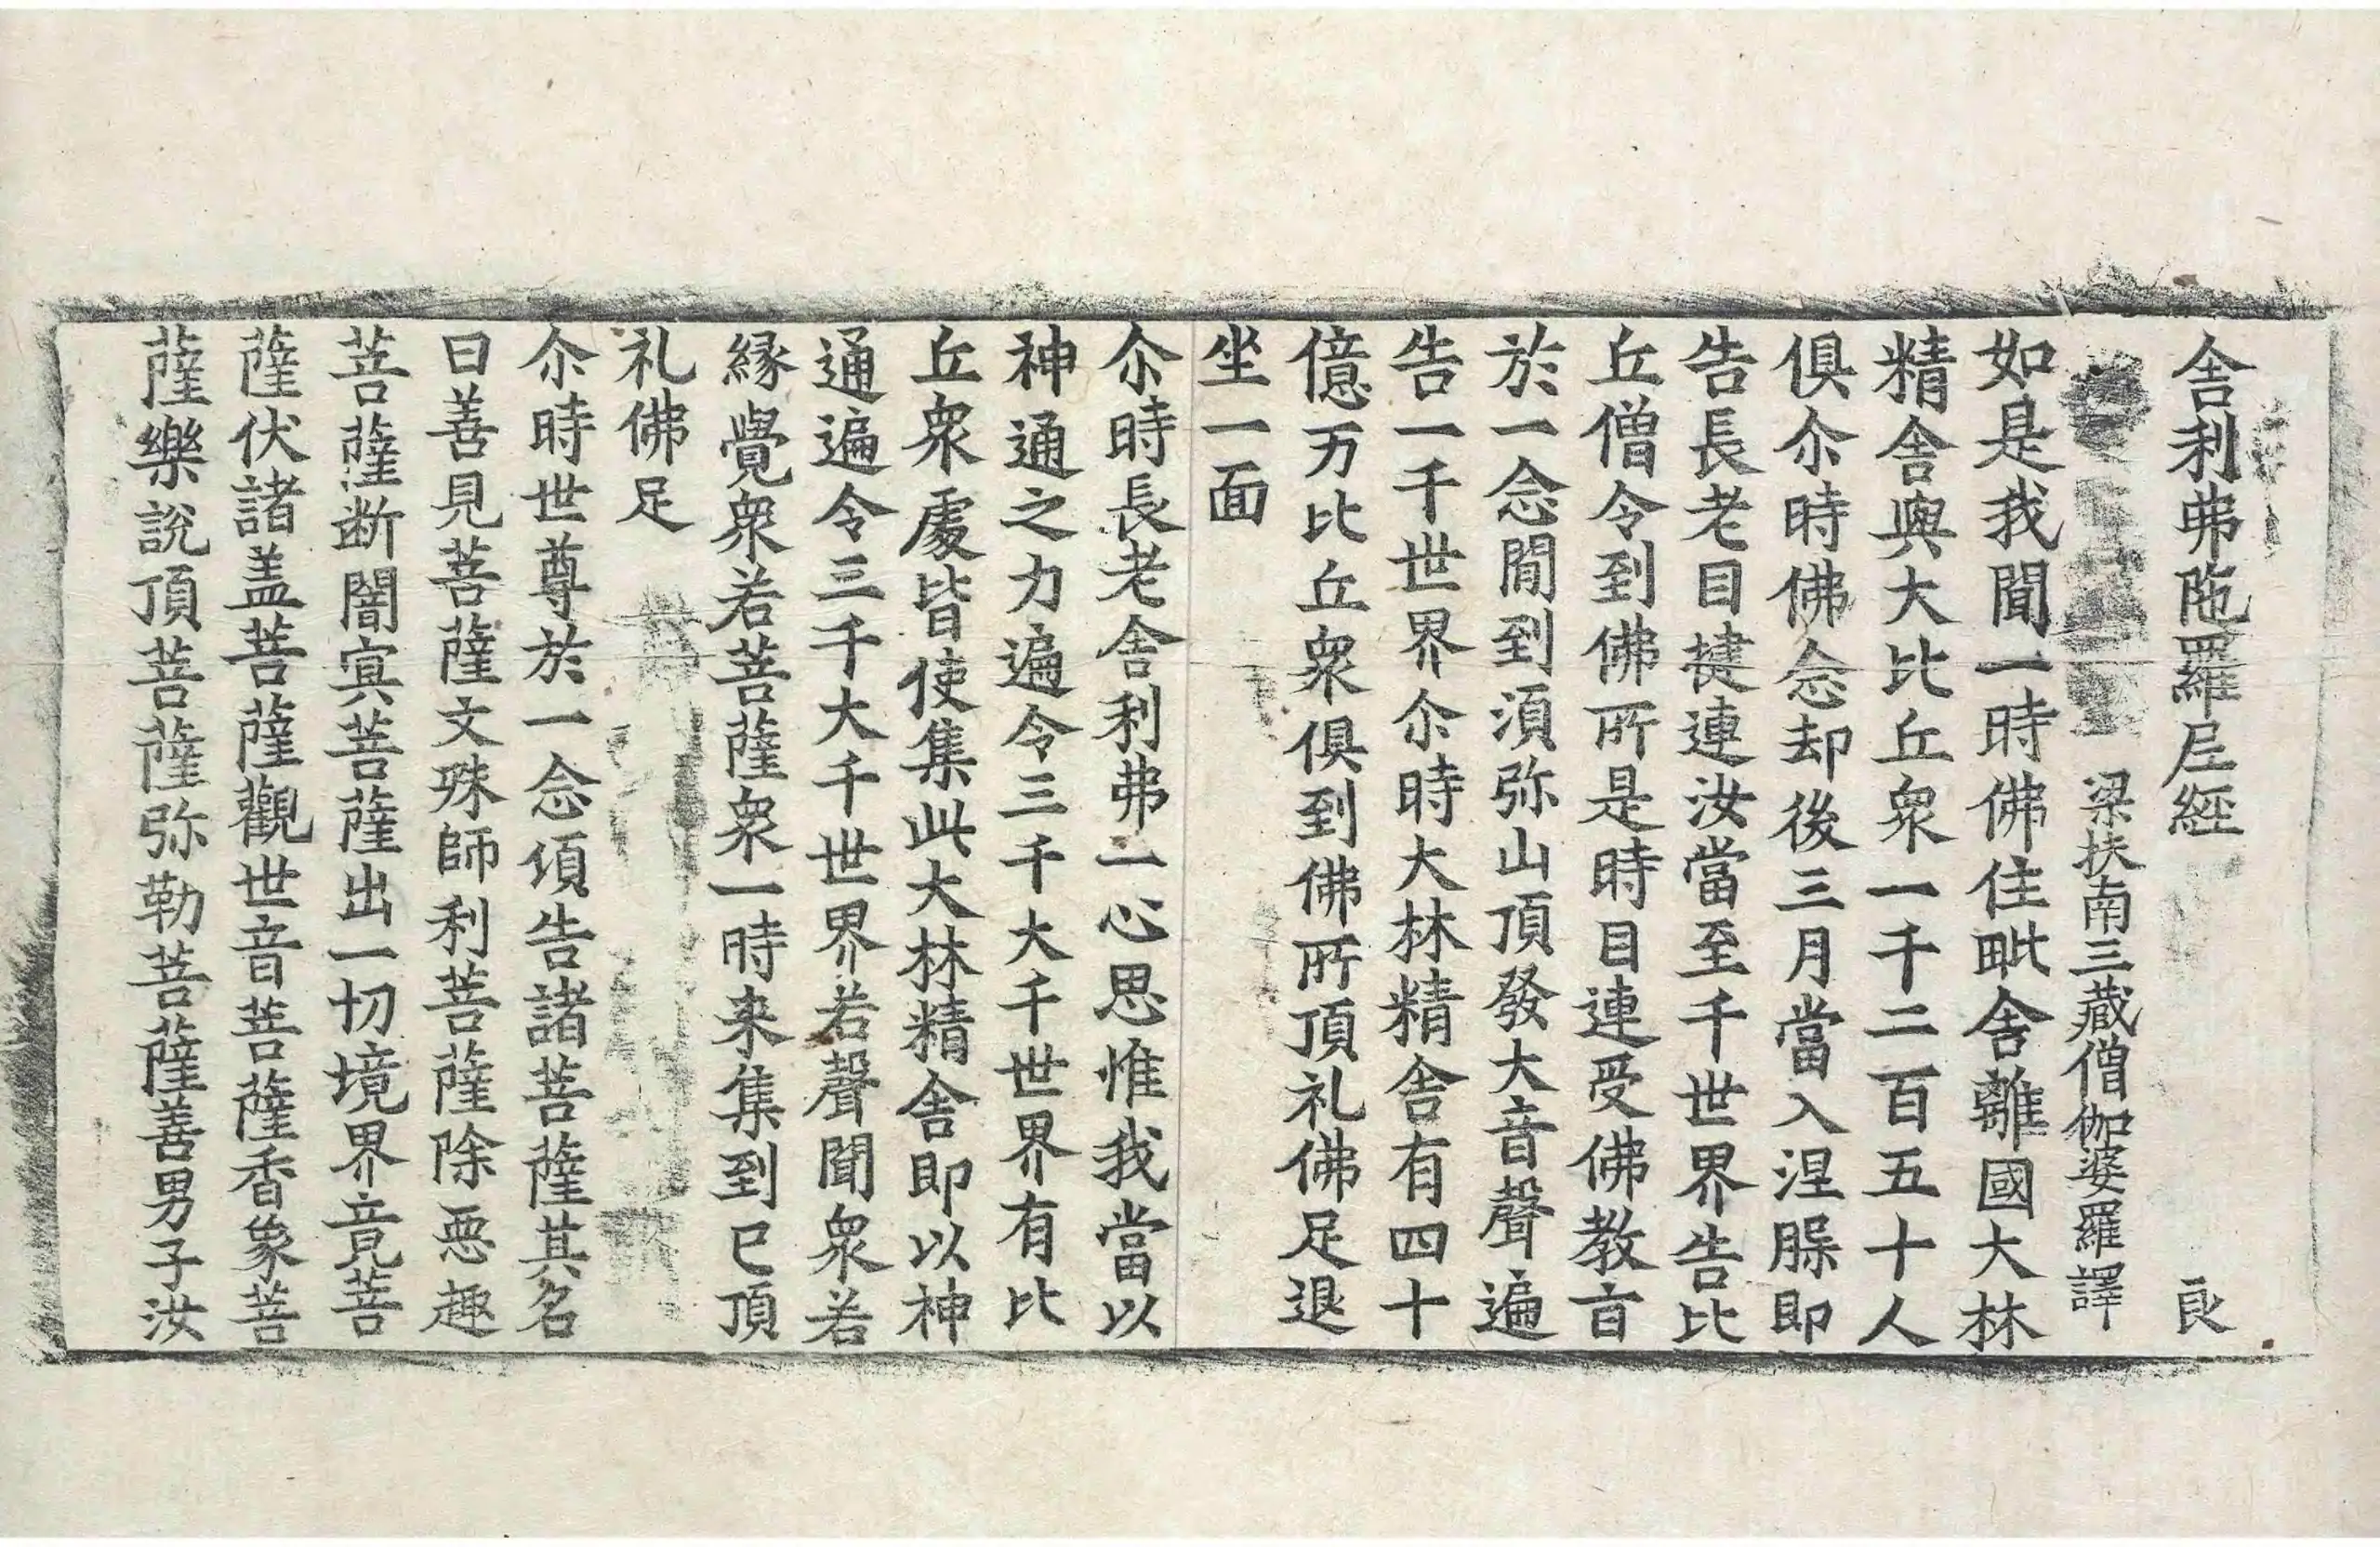 舎利弗陁羅尼經 良
梁扶南三藏僧伽婆羅譯
如是我聞一時佛住毗舎離國大林
精舎與大比丘衆一千二百五十人
俱尒時佛念却後三月當入涅槃即
告長老目揵連汝當至千世界告比
丘僧令到佛所是時目連受佛教旨
於一念閒到湏弥山頂發大音聲遍
告一千世界尒時大林精舎有四十
億万比丘衆俱到佛所頂礼佛足退
坐一面
尒時長老舎利弗一心思惟我當以
神通之力遍令三千大千世界有比
丘衆處皆使集此大林精舎即以神
通遍令三千大千世界若聲聞衆若
縁覺衆若菩薩衆一時来集到已頂
礼佛足
尒時世尊於一念頃告諸菩薩其名
曰善見菩薩文殊師利菩薩除惡趣
菩薩断闇寘菩薩出一切境界竟菩
薩伏諸盖菩薩觀世音菩薩香象菩
薩樂說頂菩薩弥勒菩薩善男子汝